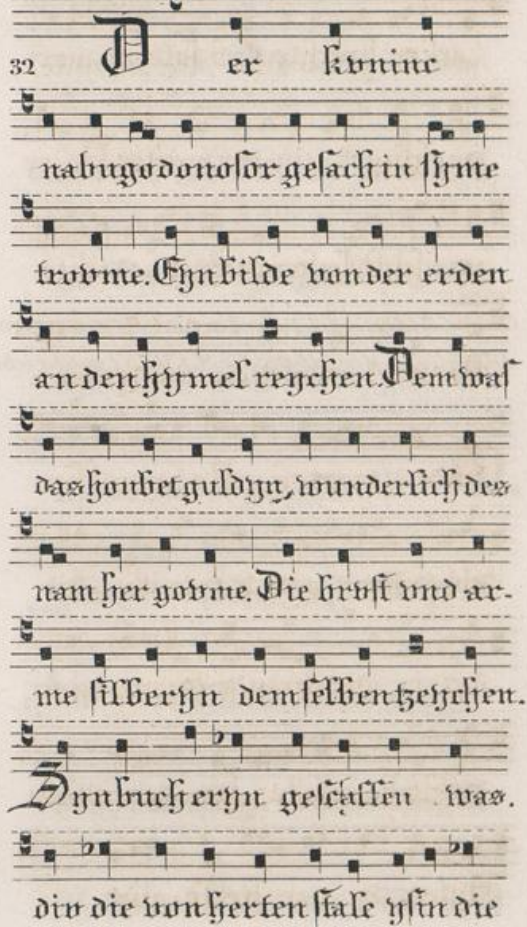 32 Der kvninc
nabugodonosor gesach in syme
trovme. Eyn bilde von der erden
an den hymel reychen. Dem was
das houbet guldyn, wunderlich des
nam her govme. Die brvst vnd ar-
me silberyn dem selben tzeychen.
Syn buch eryn geschaffen was.
div die von herten stale ysin die